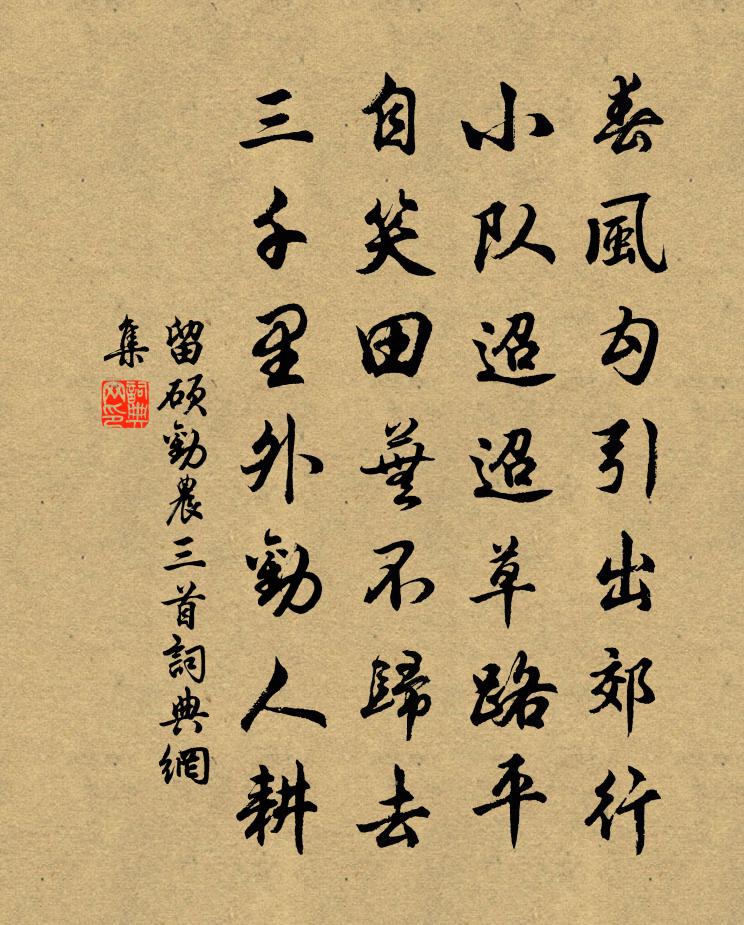 春風勾引出郊行
小队迢迢草路平
自笑田蕪不歸去
三千里外勸人耕
留碩勸農三首詞典網
集
詞典
网印